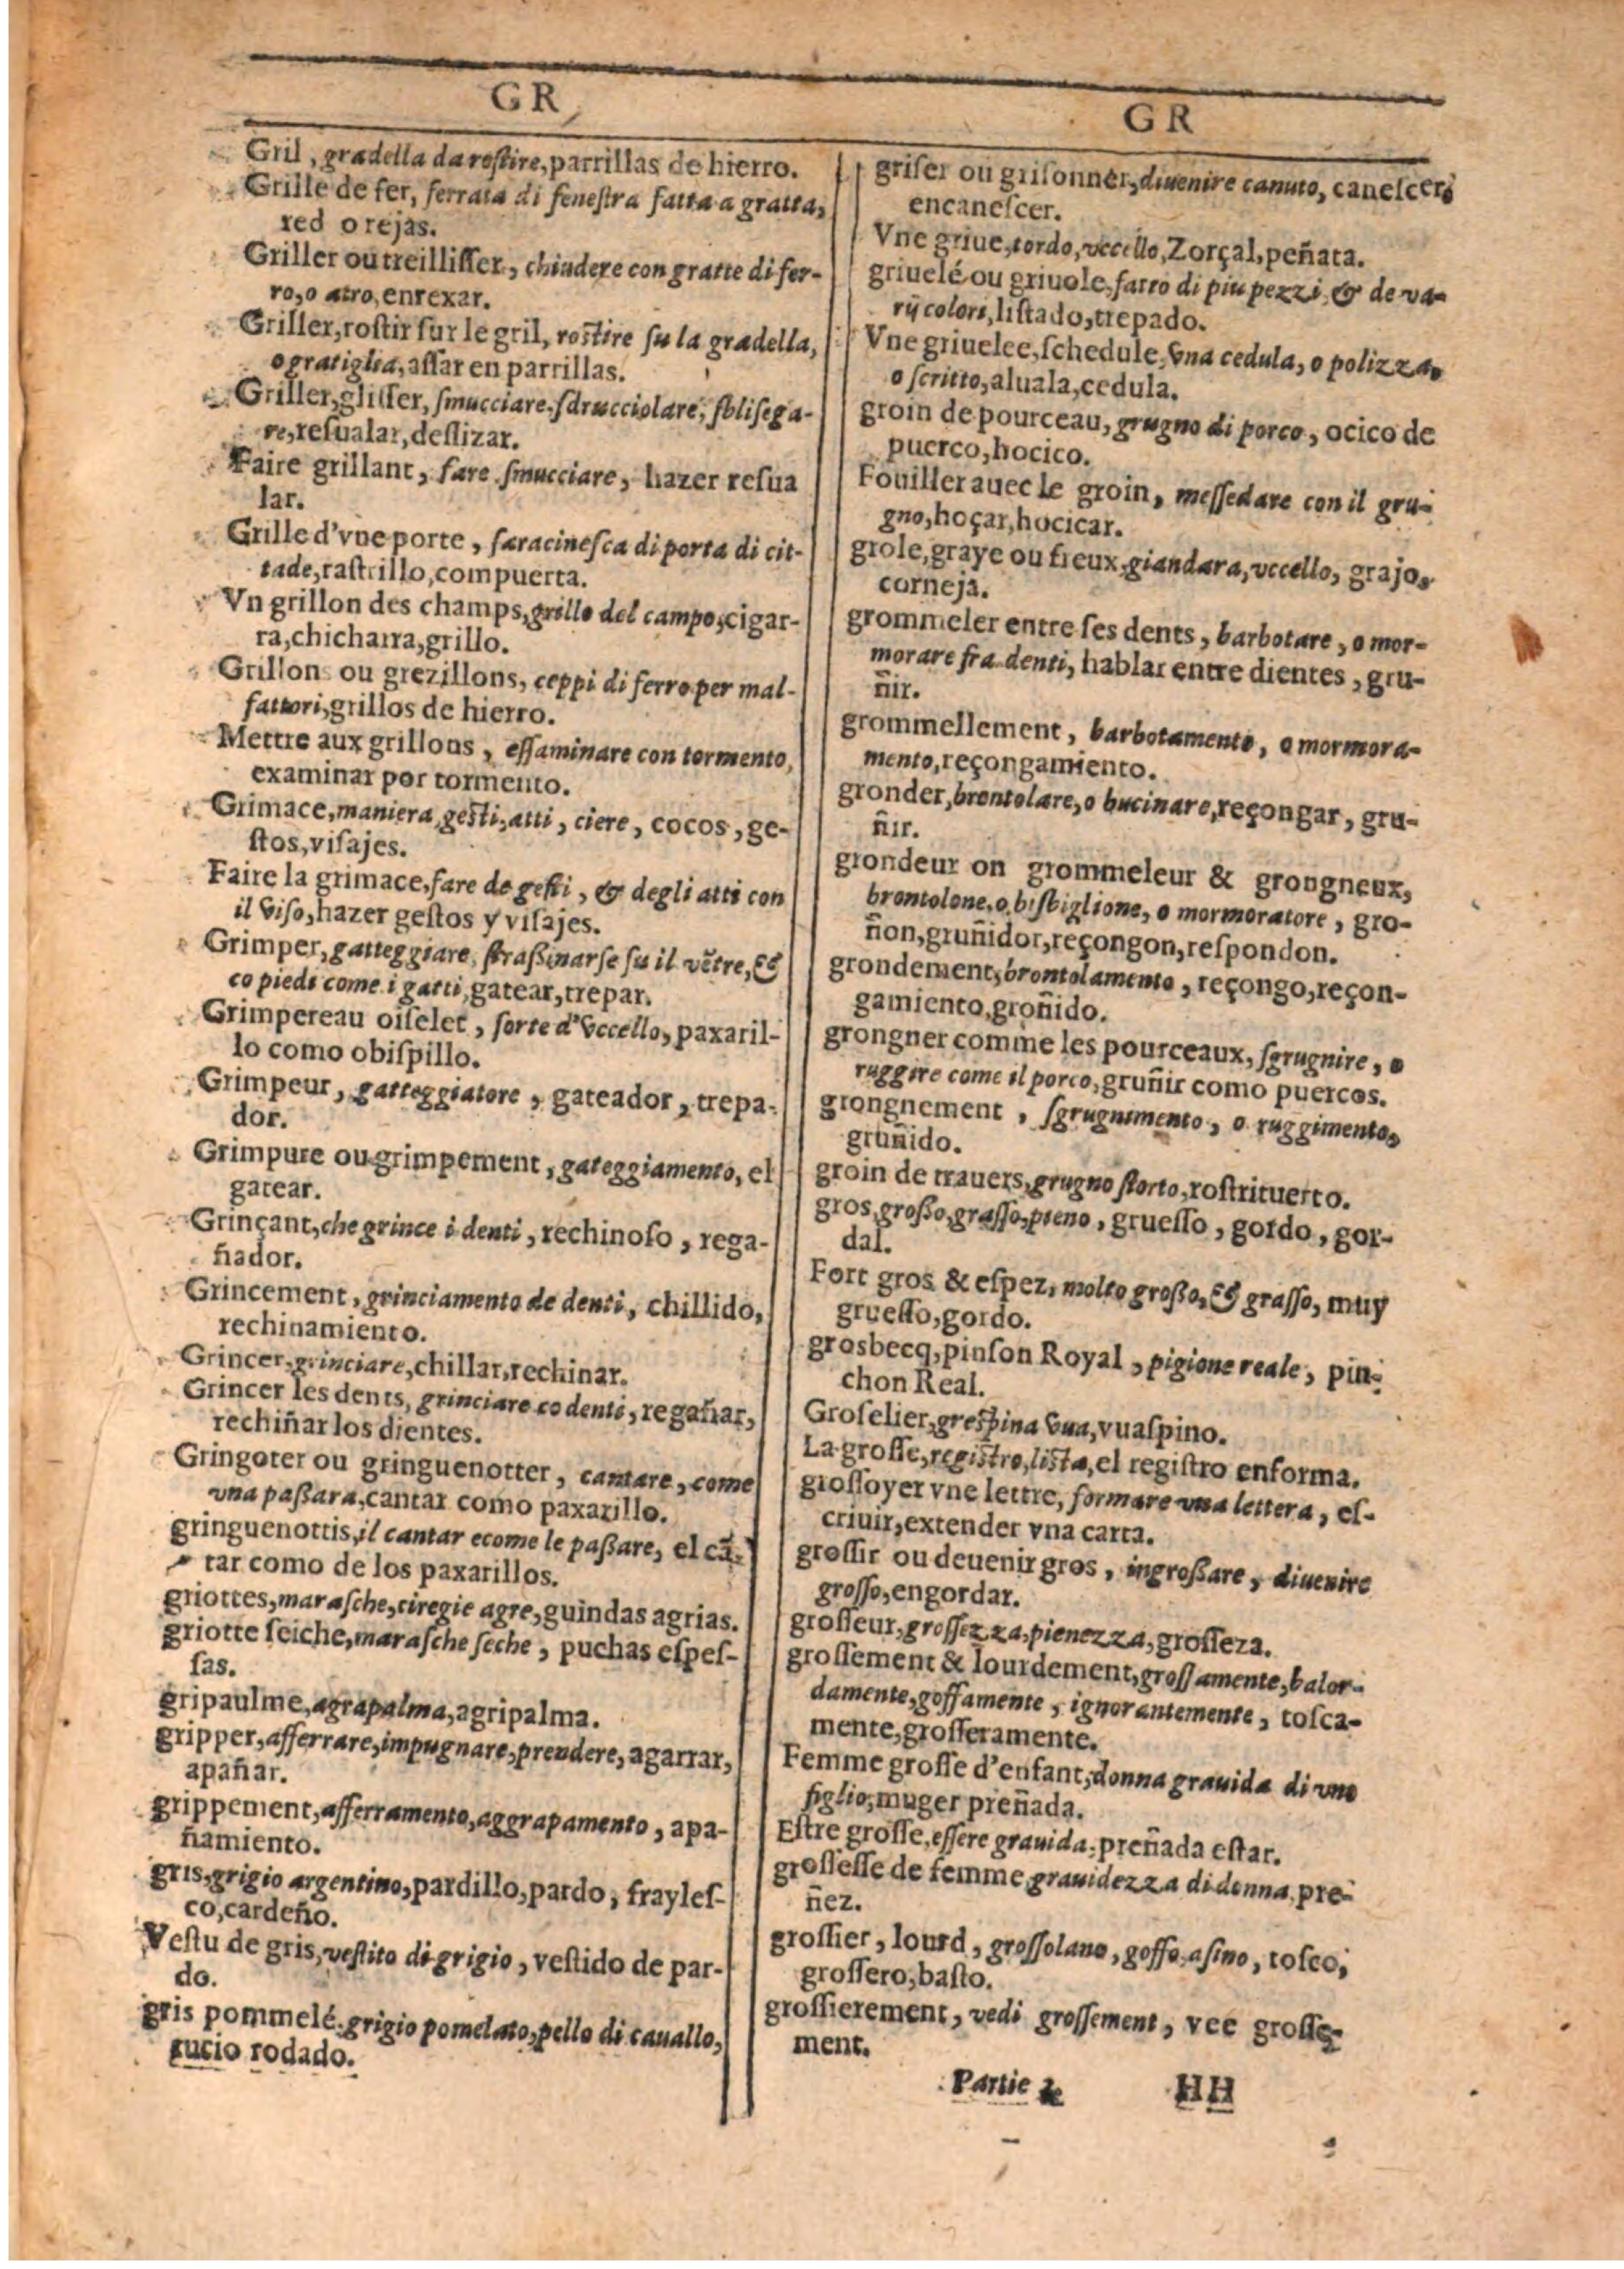 GR
Gril, gradella da rostire, parrillas de hierro.
Grille de fer, ferrata di fenestra fatta a gratta,
red o rejas.
Griller ou treillisser, chiudere con gratte di fer-
ro, o atro, enrexar.
Griller, rostir sur le gril, rostire su la gradella,
o gratiglia, assar en parrillas.
Griller, glisser, smucciare, sdrucciolare, sblisega-
re, resualar, deslizar.
Faire grillant, fare smucciare, hazer resua
lar.
Grille d'vne porte, saracinesca di porta di cit-
tade, rastrillo, compuerta.
Vn grillon des champs, grillo del campo, cigar-
ra, chicharra, grillo.
Grillons ou grezillons, ceppi di ferro per mal-
fattori, grillos de hierro.
Mettre aux grillons, essaminare con tormento,
examinar por tormento.
Grimace, maniera, gesti, atti, ciere, cocos, ge-
stos, visajes.
Faire la grimace, fare de gesti, & degli atti con
il viso, hazer gestos y visajes.
Grimper, gatteggiare, straßinarse su il vẽtre, &
co piedi come i gatti, gatear, trepar.
Grimpereau oiselet, sorte d'vccello, paxaril-
lo como obispillo.
Grimpeur, gatteggiatore, gateador, trepa-
dor.
Grimpure ou grimpement, gateggiamento, el
gatear.
Grinçant, che grince i denti, rechinoso, rega-
ñador.
Grincement, grinciamento de denti, chillido,
rechinamiento.
Grincer, grinciare, chillar, rechinar.
Grincer les dents, grinciare co denti, regañar,
rechiñar los dientes.
Gringoter ou gringuenotter, cantare, come
vna paßara, cantar como paxarillo.
gringuenottis, il cantar ecome le paßare, el cã-
tar como de los paxarillos.
griottes, marasche, ciregie agre, guindas agrias.
griotte seiche, marasche seche, puchas espes-
sas.
gripaulme, agrapalma, agripalma.
gripper, afferrare, impugnare, prendere, agarrar,
apañar.
grippement, afferramento, aggrapamento, apa-
ñamiento.
gris, grigio argentino, pardillo, pardo, frayles-
co, cardeño.
Vestu de gris, vestito di grigio, vestido de par-
do.
gris pommelé, grigio pomelato, pello di cauallo,
rucio rodado.
GR
griser ou grisonner, diuenire canuto, canescer,
encanescer.
Vne griue, tordo, vccello, Zorçal, peñata.
griuelé ou griuole, fatto di piu pezzi, & de va-
rij colori, listado, trepado.
Vne griuelee, schedule, vna cedula, o polizza,
o scritto, aluala, cedula.
groin de pourceau, grugno di porco, ocico de
puerco, hocico.
Fouiller auec le groin, messedare con il gru-
gno, hoçar, hocicar.
grole, graye ou freux, giandara, vccello, grajo,
corneja.
grommeler entre ses dents, barbotare, o mor-
morare fra denti, hablar entre dientes, gru-
ñir.
grommellement, barbotamento, o mormora-
mento, reçongamiento.
gronder, brontolare, o bucinare, reçongar, gru-
ñir.
grondeur on grommeleur & grongneux,
brontolone, o bisbiglione, o mormoratore, gro-
ñon, gruñidor, reçongon, respondon.
grondement, brontolamento, reçongo, reçon-
gamiento, groñido.
grongner comme les pourceaux, sgrugnire, o
ruggire come il porco, gruñir como puercos.
grongnement, sgrugnimento, o ruggimento,
gruñido.
groin de trauers, grugno storto, rostrituerto.
gros, großo, grasso, pieno, gruesso, gordo, gor-
dal.
Fort gros & espez, molto großo, & grasso, muy
gruesso, gordo.
grosbecq, pinson Royal, pigione reale, pin-
chon Real.
Groselier, grespina vua, vuaspino.
La grosse, registro, lista, el registro enforma.
grossoyer vne lettre, formare vna lettera, es-
criuir, extender vna carta.
grossir ou deuenir gros, ingroßare, diuenire
grosso, engordar.
grosseur, grossezza, pienezza, grosseza.
grossement & lourdement, grossamente, balor-
damente, goffamente, ignorantemente, tosca-
mente, grosseramente.
Femme grosse d'enfant, donna grauida di vno
figlio, muger preñada.
Estre grosse, essere grauida, preñada estar.
grossesse de femme, grauidezza di donna, pre-
ñez.
grossier, lourd, grossolano, goffo, asino, tosco,
grossero, basto.
grossierement, vedi grossement, vee grosse-
ment.
Partie 2. HH